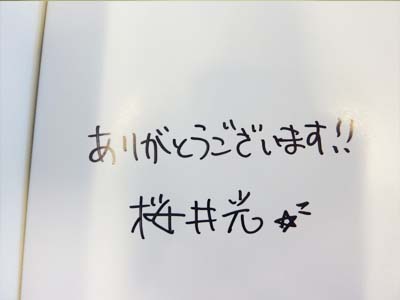 ありがとうございます!!
桜井光☆